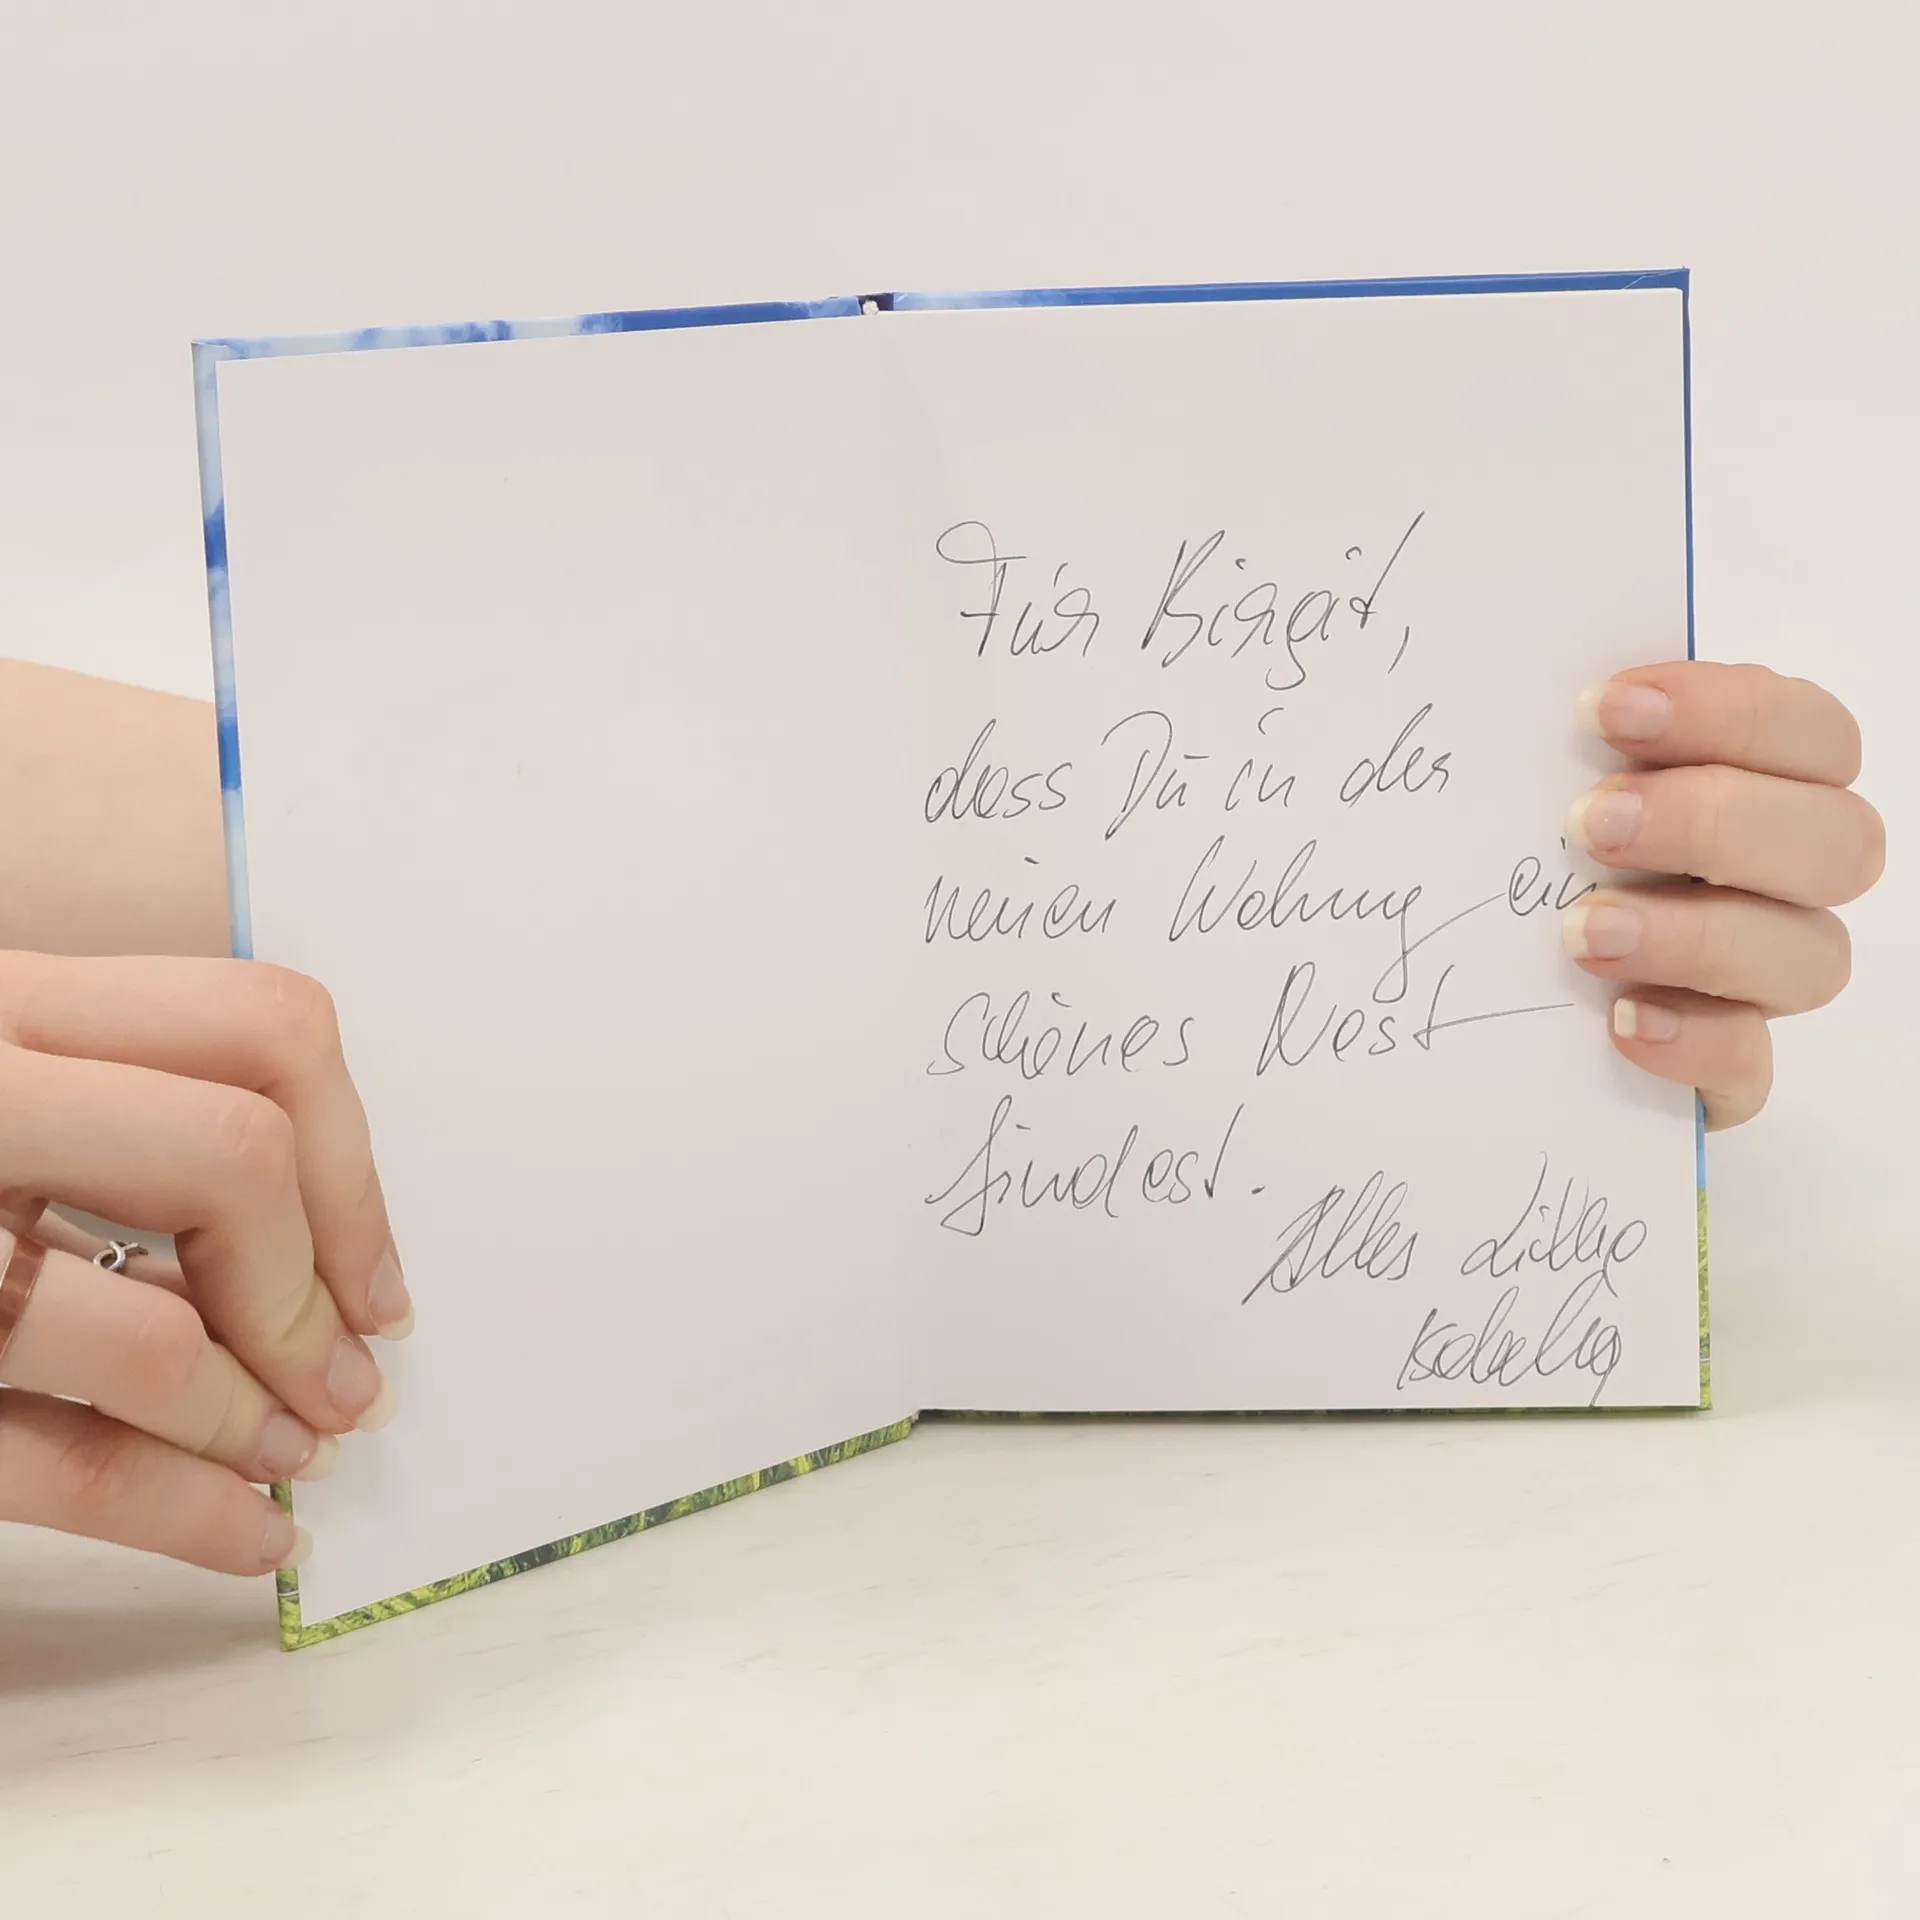 Für Birgit,
dass Du in der
neuen Wohnung ein
schönes Nest
findest.
Alles Liebe